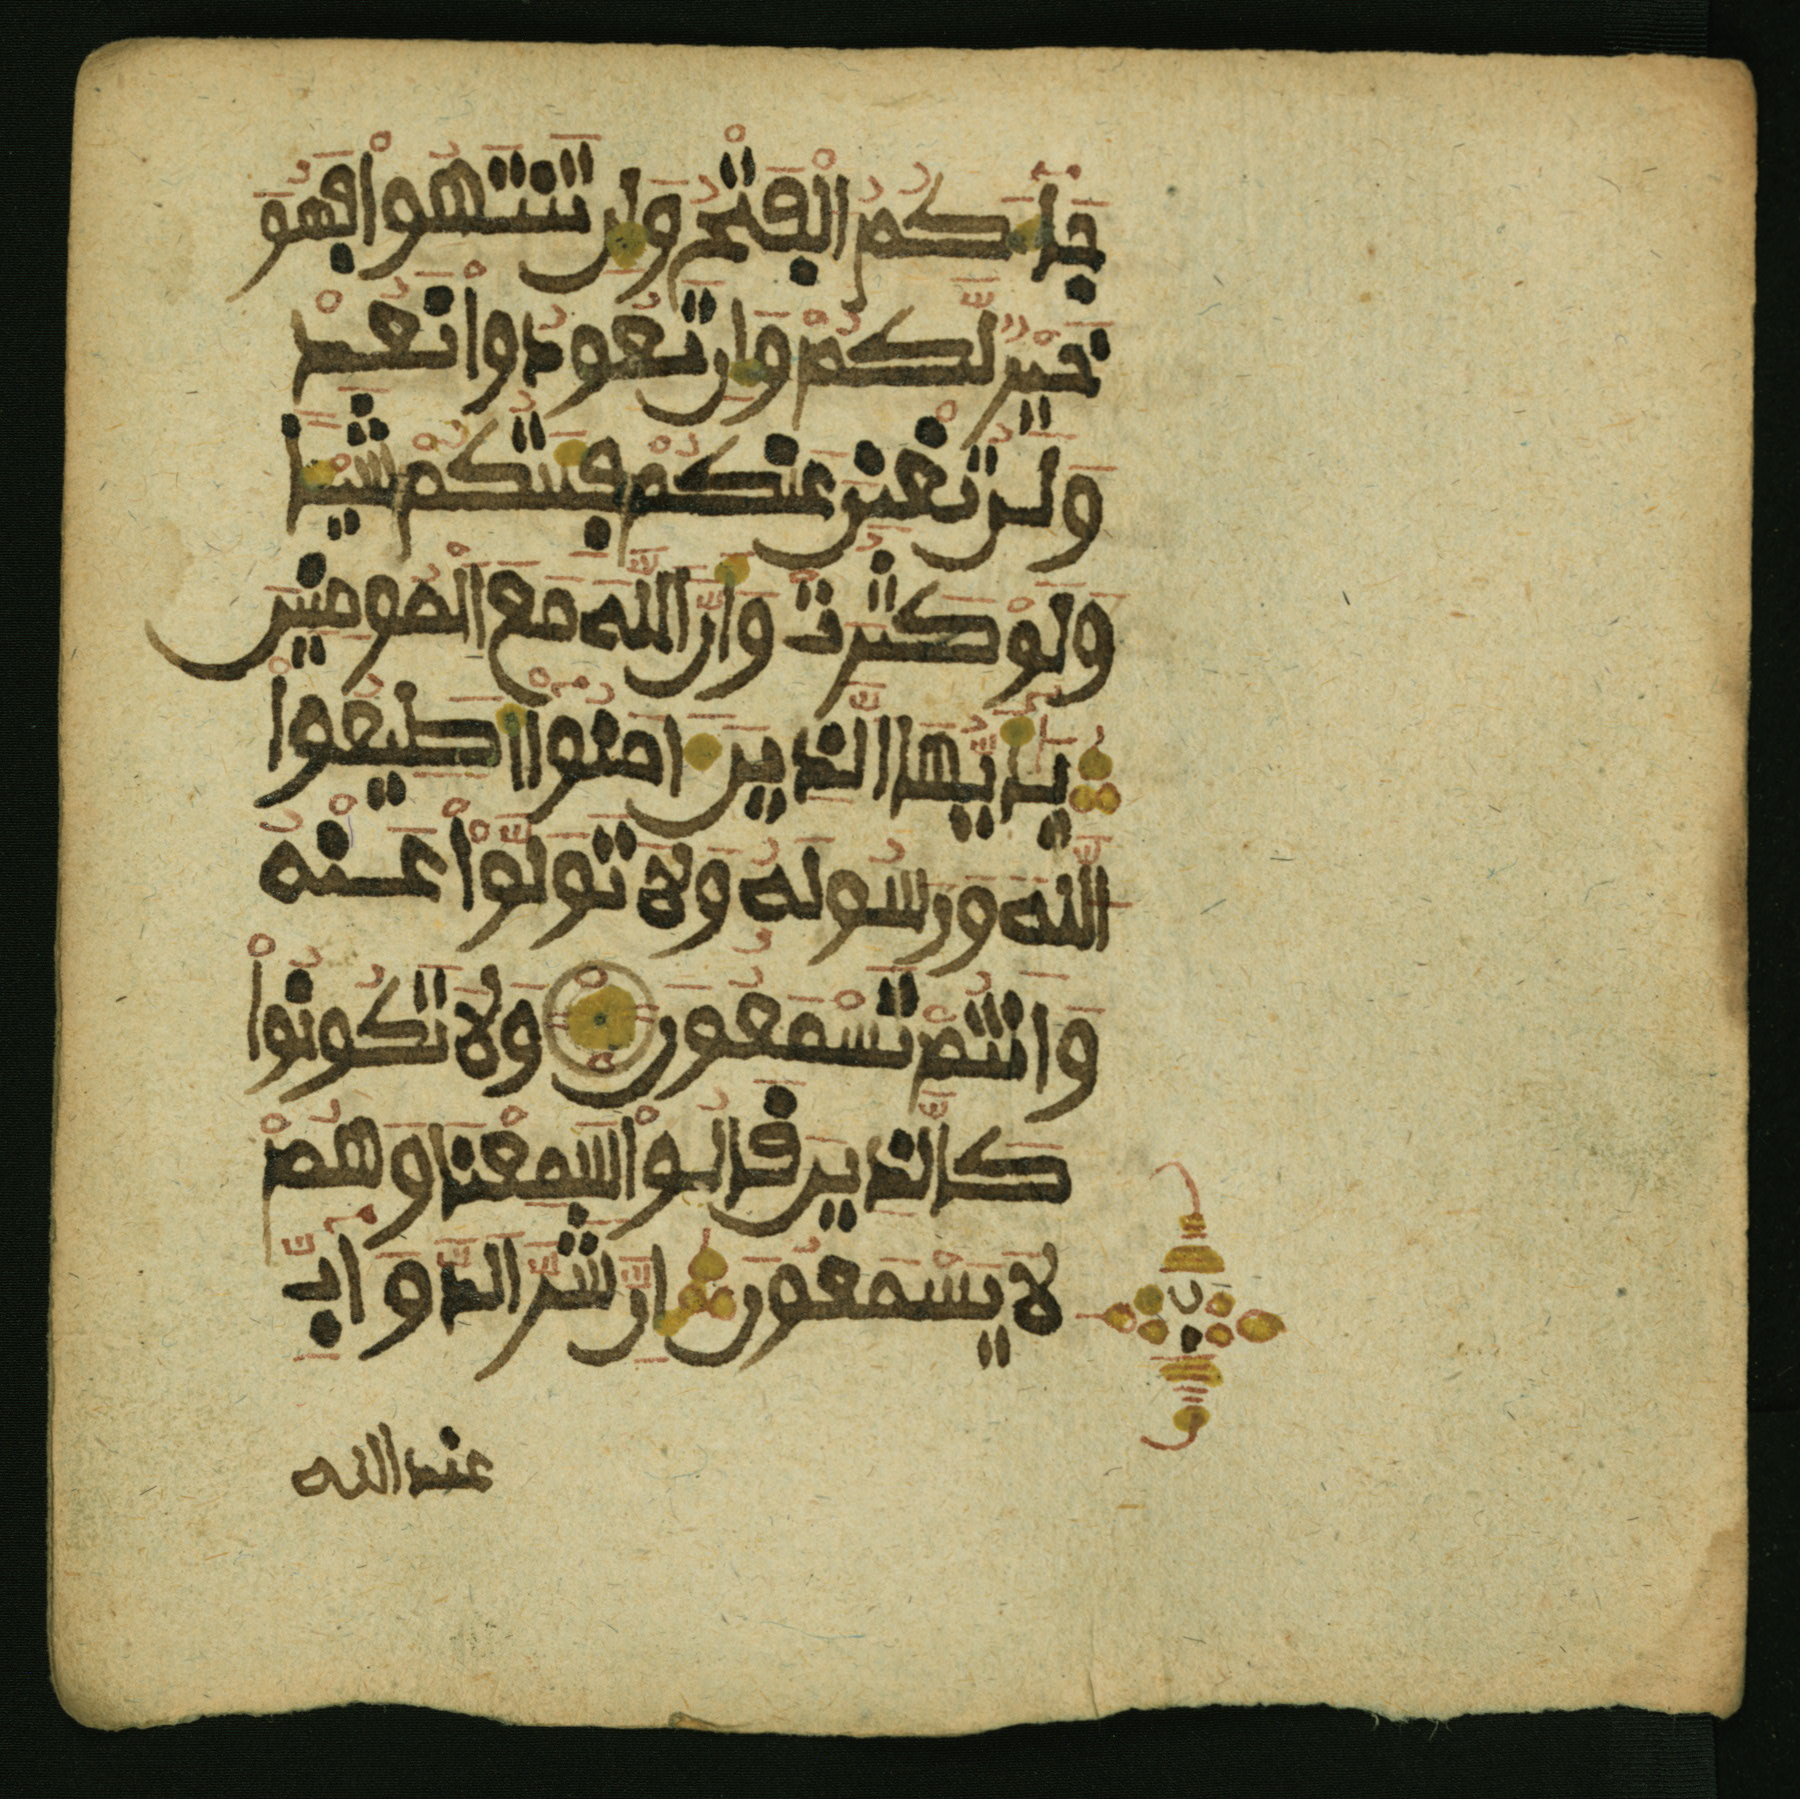 جَآءَكُمُ الْفَتْحُ وَإِن تَنتَهُواْ فَهُوَ
خَيْرٌ لَّكُمْ وَإِن تَعُودُواْ نَعُدْ
وَلَن تُغْنِيَ عَنكُمْ فِئَتُكُمْ شَيْئًا
وَلَوْ كَثُرَتْ وَأَنَّ اللَّهَ مَعَ الْمُومِنِينَ
يَٰأَيُّهَا الَّذِينَ ءَامَنُواْ أَطِيعُواْ
اللَّهَ وَرَسُولَهُ وَلَا تَوَلَّوْاْ عَنْهُ
وَأَنتُمْ تَسْمَعُونَ وَلَا تَكُونُواْ
كَالَّذِينَ قَالُواْ سَمِعْنَا وَهُمْ
لَا يَسْمَعُونَ إِنَّ شَرَّ الدَّوَآبِّ
عند الله